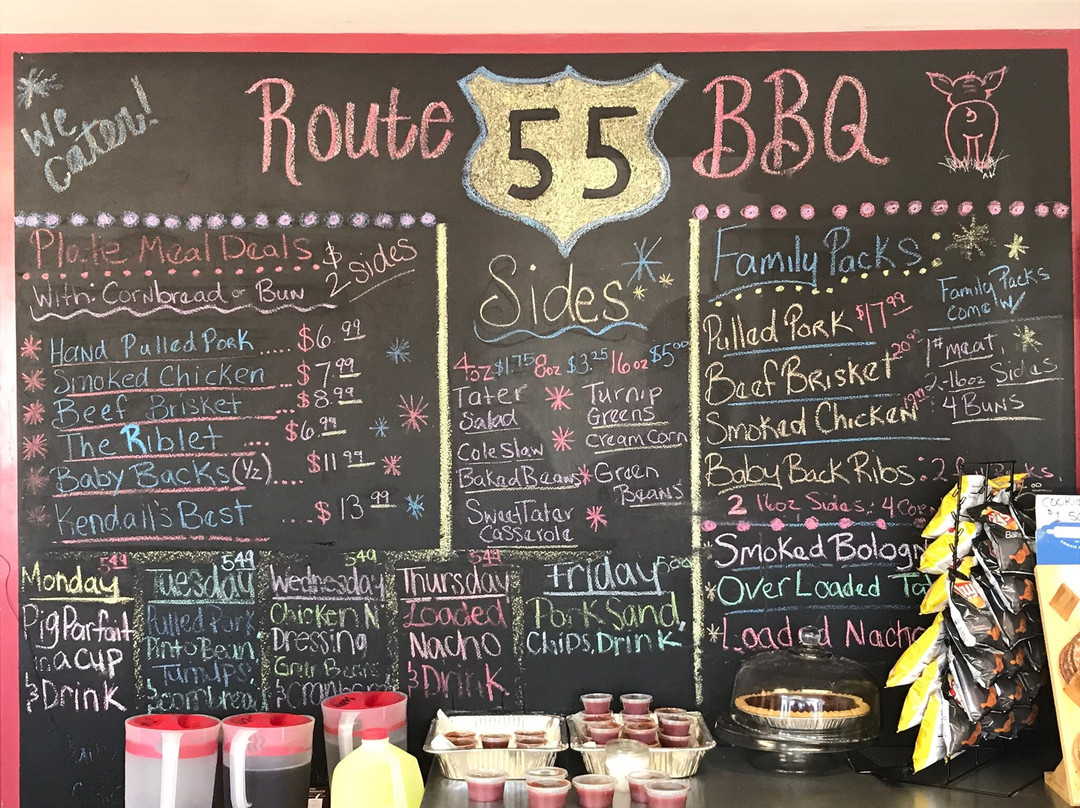 We
Cater!
Route 55 BBQ
Plate Meal Deals $
2 sides
With: Cornbread or Bun
Hand Pulled Pork ..... $6.99
Smoked Chicken ... $7.99
Beef Brisket ... $8.99
The Riblet .... $6.99
Baby Backs (1/2) .... $11.99
Kendall's Best .... $13.99
Sides
4oz $1.75 8oz $3.25 16oz $5.00
Tater
Salad
Cole Slaw
Baked Beans
Sweet Tater
Casserole
Turnip
Greens
Cream Corn
Green
Beans
Family Packs
Family Packs
come w/
1# meat,
2-16oz Sides
4 Buns
Pulled Pork $17.99
Beef Brisket
Smoked Chicken
Baby Back Ribs: 2
2 16oz Sides, 4
Smoked Bologn
Over Loaded Ta
Loaded Nacho
Monday 5.49
Pig Parfait
in a cup
& Drink
Tuesday 5.49
Pulled Pork
Pinto Bean
Turnips
& cornbread
Wednesday 5.49
Chicken N
Dressing
Green Beans
Thursday 5.49
Loaded
Nacho
& Drink
Friday
Pork Sand,
Chips, Drink